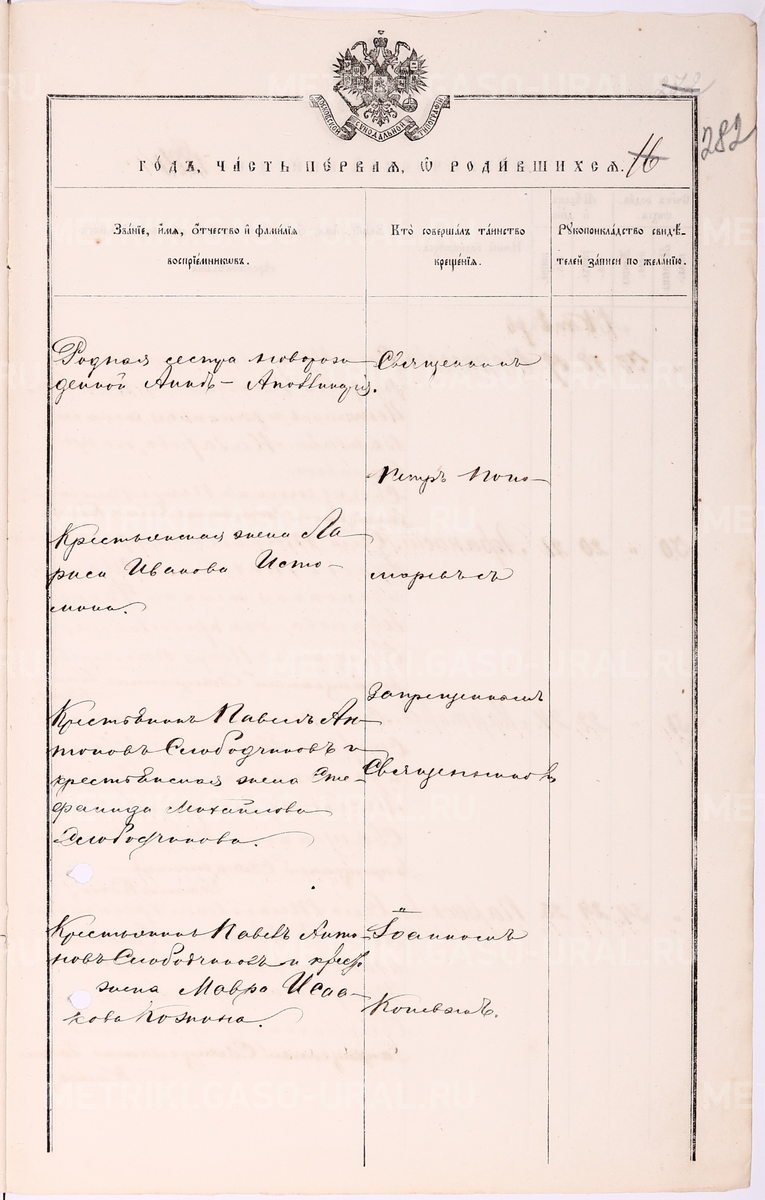 272
282
МОСКОВСКОЙ СѴНОДАЛЬНОЙ ТИПОГРАФІИ
ГОДЪ, ЧАСТЬ ПЕРВАЯ, Ѡ РОДИВШИХСЯ. 16
Званіе, имя, отчество и фамилія
воспріемниковъ.
Кто совершалъ таинство
крещенія.
Рукоприкладство свидѣ-
телей записи по желанію.
Родная сестра новорож
денной Аннѣ - Аполлинарія.
Священникъ
Петръ Поно-
Крестьянская жена Ла
риса Иванова Исто-
мина.
маревъ съ
запрещеннымъ
Крестьянинъ Павелъ Ан-
тоновъ Слободчиковъ и
крестьянская жена Сте-
фанида Михайлова
Слободчикова.
Священнико
Крестьянинъ Павелъ Анто-
новъ Слободчиковъ и крест
жена Мавра Исаа-
кова Кожина.
Іоанномъ
METRIKI.GASO-URAL.RU